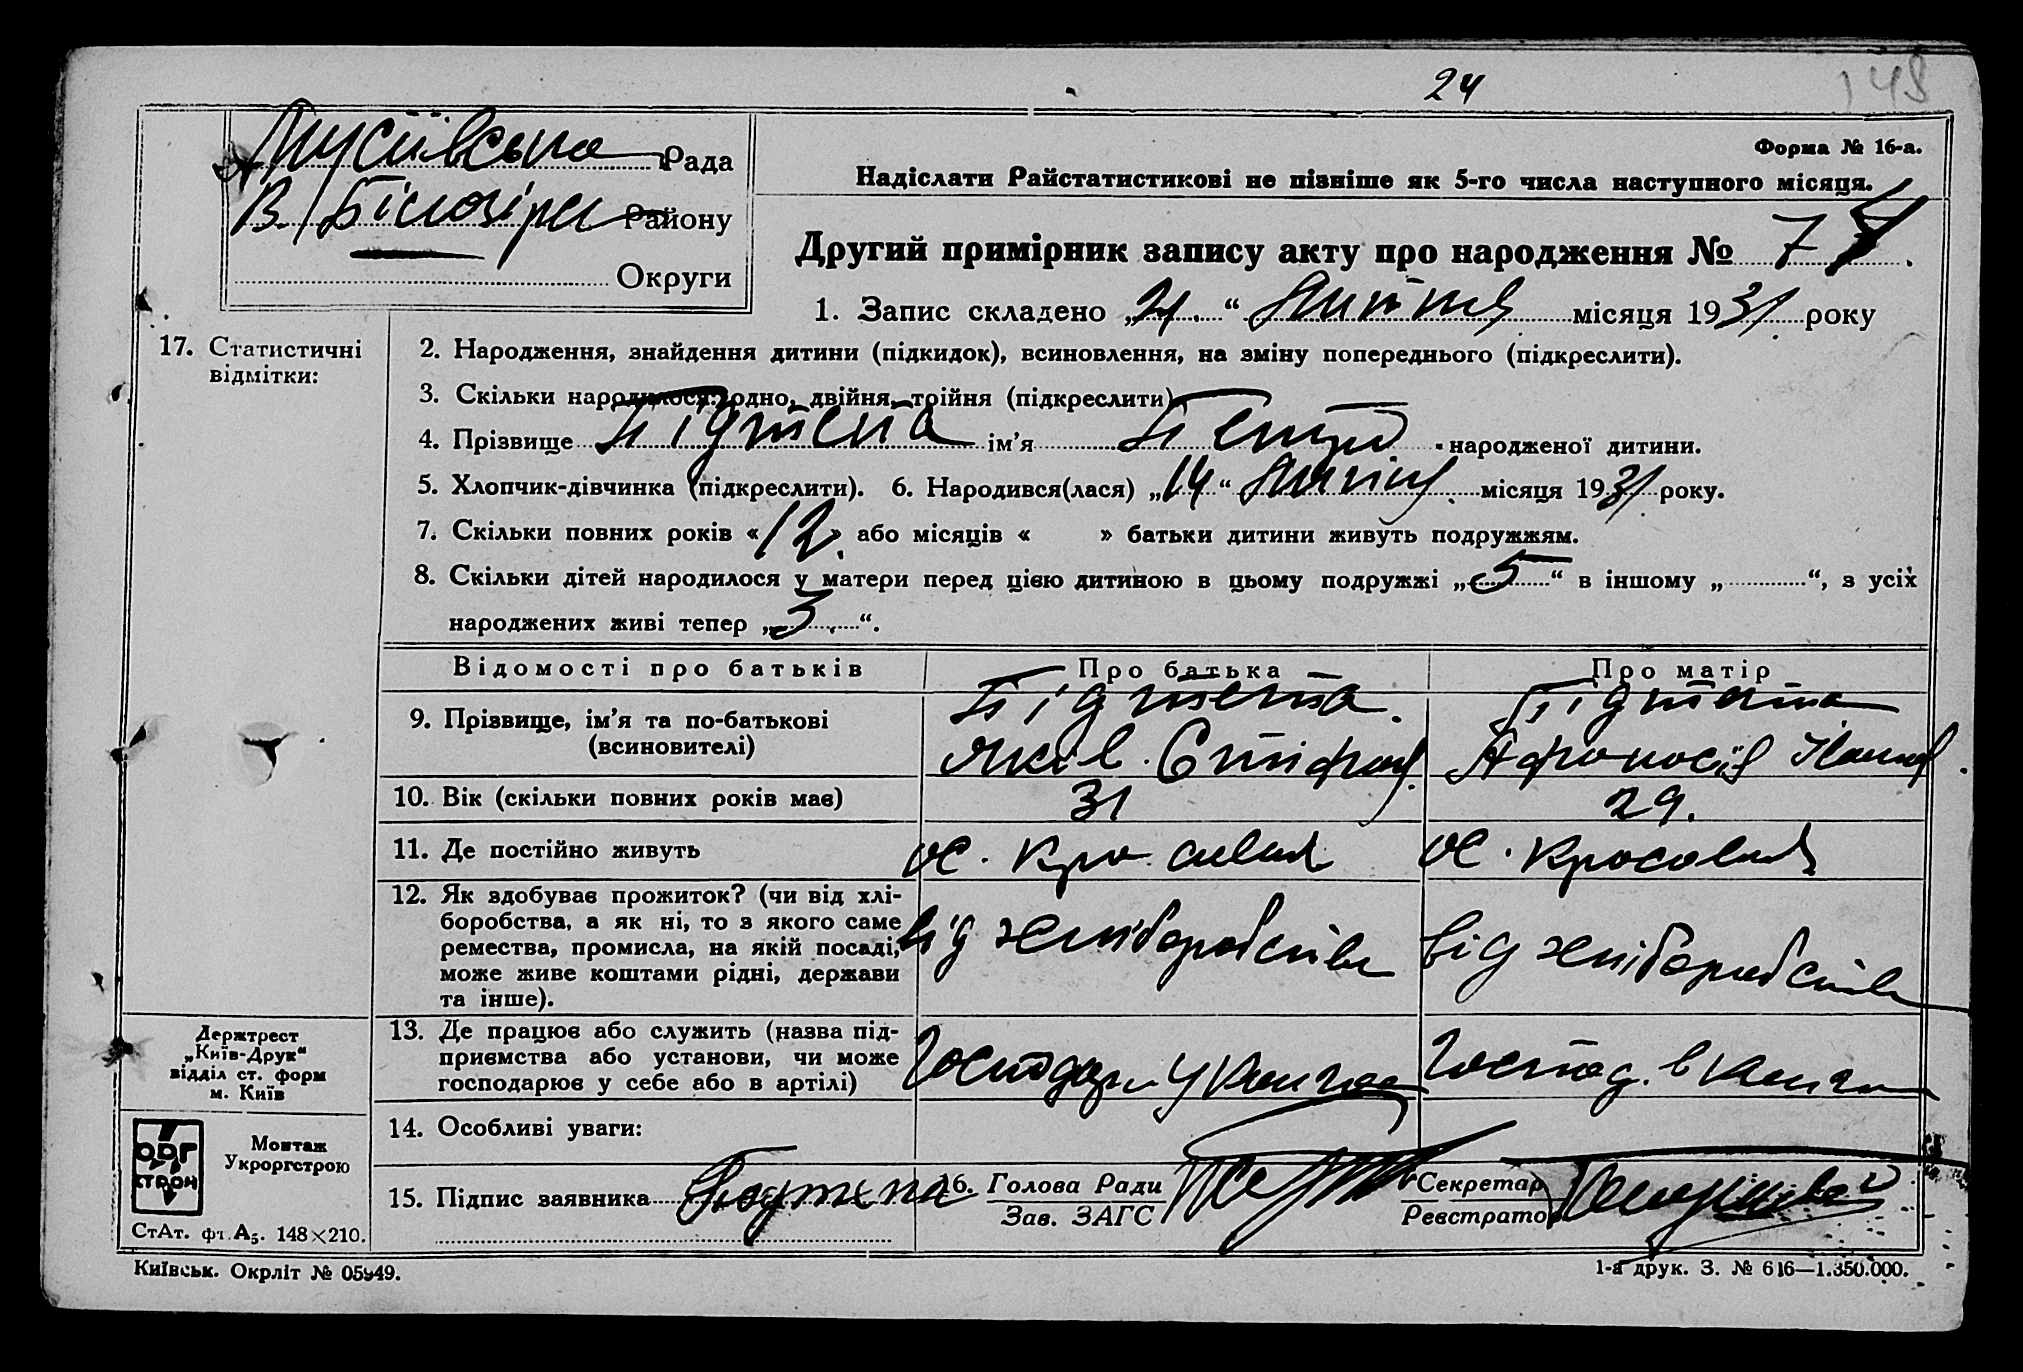 24
148
Мусіївська Рада
В/Білозірк Району
Округи
Форма № 16-а.
Надіслати Райстатистикові не пізніше як 5-го числа наступного місяця.
Другий примірник запису акту про народження № 7
1. Запис складено „21.“ Липня місяця 1931 року
17. Статистичні
відмітки:
2. Народження, знайдення дитини (підкидок), всиновлення, на зміну попереднього (підкреслити).
3. Скільки народилося: одно, двійня, трійня (підкреслити)
4. Прізвище Підтепа ім’я Петро народженої дитини.
5. Хлопчик-дівчинка (підкреслити). 6. Народився(лася) „14“ Липня місяця 1931 року.
7. Скільки повних років «12» або місяців « » батьки дитини живуть подружжям.
8. Скільки дітей народилося у матери перед цією дитиною в цьому подружжі „5“ в іншому „ “, з усіх
народжених живі тепер „3“.
Відомості про батьків Про батька Про матір
9. Прізвище, ім’я та по-батькові
(всиновителі)
Підтепа. Підтепа
Яків
10. Вік (скільки повних років має) 31 29.
11. Де постійно живуть
12. Як здобуває прожиток? (чи від хлі-
боробства, а як ні, то з якого саме
ремества, промисла, на якій посаді,
може живе коштами рідні, держави
та інше).
від хліборобства від хліборобства
13. Де працює або служить (назва під-
приємства або установи, чи може
господарює у себе або в артілі)
14. Особливі уваги:
15. Підпис заявника
16. Голова Ради
Зав. ЗАГС
Секретар
Реєстратор
Держтрест
„Київ-Друк“
відділ ст. форм
м. Київ
ОРГ
СТРОЙ
Монтаж
Укроргстрою
СтАт. фт. А₅. 148×210.
Київськ. Окрліт № 05949.
1-а друк. З. № 616—1.350.000.